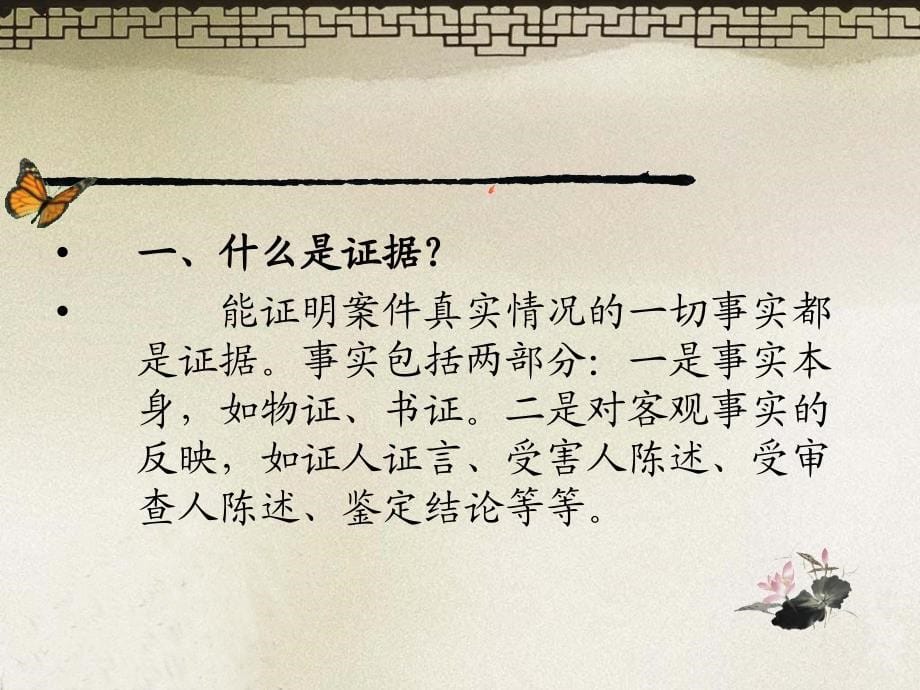 • 一、什么是证据?
• 能证明案件真实情况的一切事实都
是证据。事实包括两部分：一是事实本
身，如物证、书证。二是对客观事实的
反映，如证人证言、受害人陈述、受审
查人陈述、鉴定结论等等。